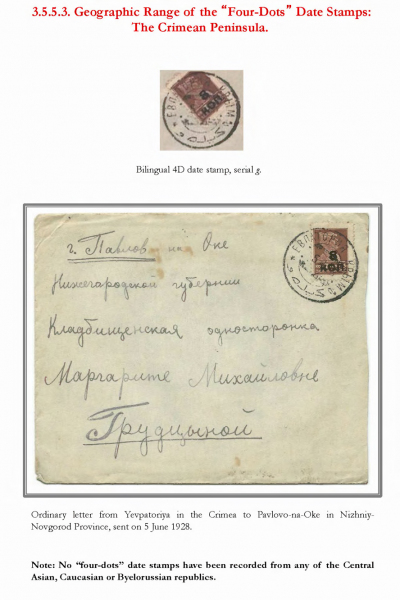 3.5.5.3. Geographic Range of the “Four-Dots” Date Stamps:
The Crimean Peninsula.
8
КОП
Bilingual 4D date stamp, serial g.
г. Павлов на Оке
Нижегородской губернии
Кладбищенская односторонка
Маргарите Михайловне
Грудцыной
8
КОП
КРЫМ
Ordinary letter from Yevpatoriya in the Crimea to Pavlovo-na-Oke in Nizhniy-
Novgorod Province, sent on 5 June 1928.
Note: No “four-dots” date stamps have been recorded from any of the Central
Asian, Caucasian or Byelorussian republics.